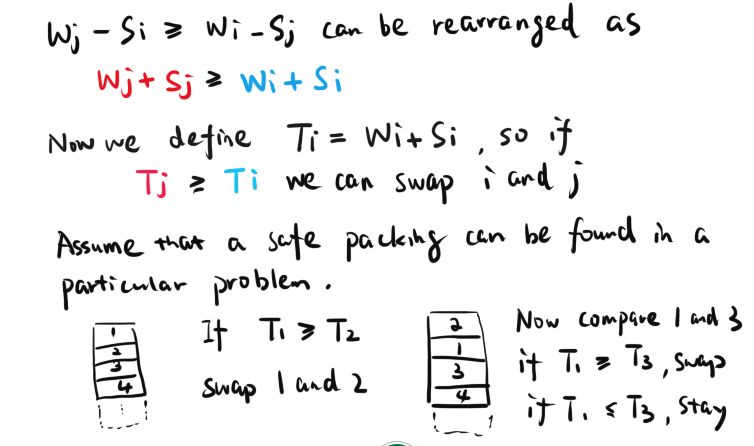 Wj - Si ≥ Wi - Sj can be rearranged as
Wj + Sj ≥ Wi + Si
Now we define Ti = Wi + Si, so if
Tj ≥ Ti we can swap i and j
Assume that a safe packing can be found in a
particular problem.
1
2
3
4
If T1 ≥ T2
swap 1 and 2
2
1
3
4
Now compare 1 and 3
if T1 ≥ T3, swap
if T1 ≤ T3, stay